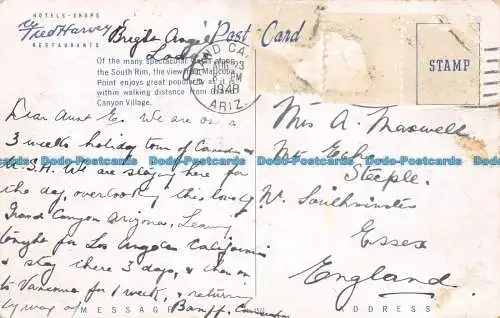 HOTELS · SHOPS
Fred Harvey
RESTAURANTS
Bright Angel
Lodge
Post Card
Of the many spectacular views along
the South Rim, the view from Maricopa
Point enjoys great popularity as it is
within walking distance from
Canyon Village.
GRAND CANYON
AUG 23
AM
1948
ARIZ.
STAMP
Dear Aunt E. We are on a
3 weeks holiday tour of Canada &
U.S.A. We are staying here for
the day, overlooking this lovely
Grand Canyon Arizona, Leaving
tonight for Los Angeles California
& stay there 3 days, & then on
to Vancouver for 1 week, & returning
by way of Banff, Canadian
Mrs A. Maxwell
Steeple.
Nr. Southminster
Essex
England.
MESSAGE
ADDRESS
Dodo-Postcards
Dodo-Postcards
Dodo-Postcards
Dodo-Postcards
Dodo-Postcards